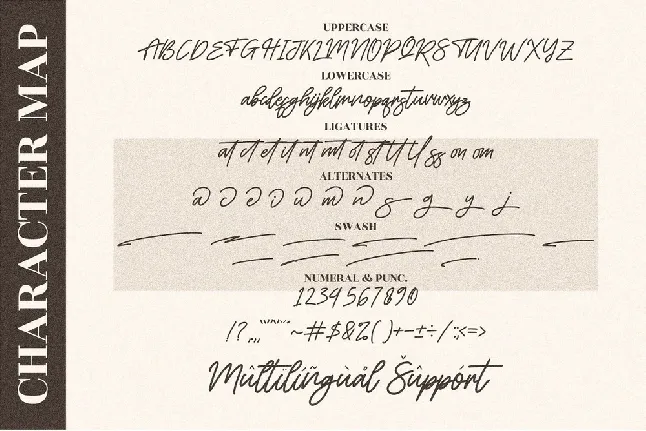 CHARACTER MAP
UPPERCASE
ABCDEFGHIJKLMNOPQRSTUVWXYZ
LOWERCASE
abcdefghijklmnopqrstuvwxyz
LIGATURES
at ct et it nt mt ot st tt ll ss on om
ALTERNATES
a s g y j
SWASH
NUMERAL & PUNC.
1234567890
!? ~#$&%()+-±÷/:;<=>
Mûltílíñgùàl Šûppórt